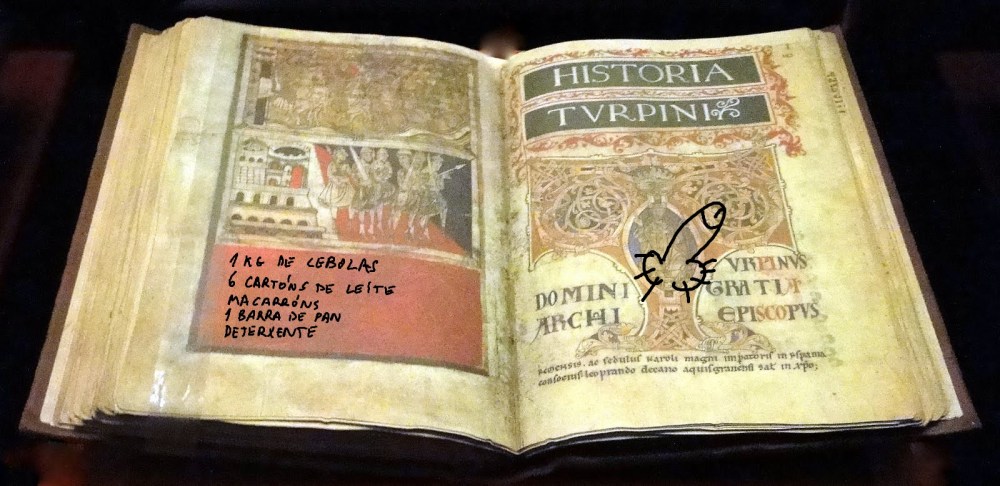 1 KG DE CEBOLAS
6 CARTÓNS DE LEITE
MACARRÓNS
1 BARRA DE PAN
DETERXENTE
HISTORIA
TVRPINI
VRPINVS
DOMINI GRATI
ARCHI EPISCOPVS
REMENSIS. ac sedulus karoli magni imperatoris in yspania
consocius. leoprando decano aquisgranensi sal in xpo;